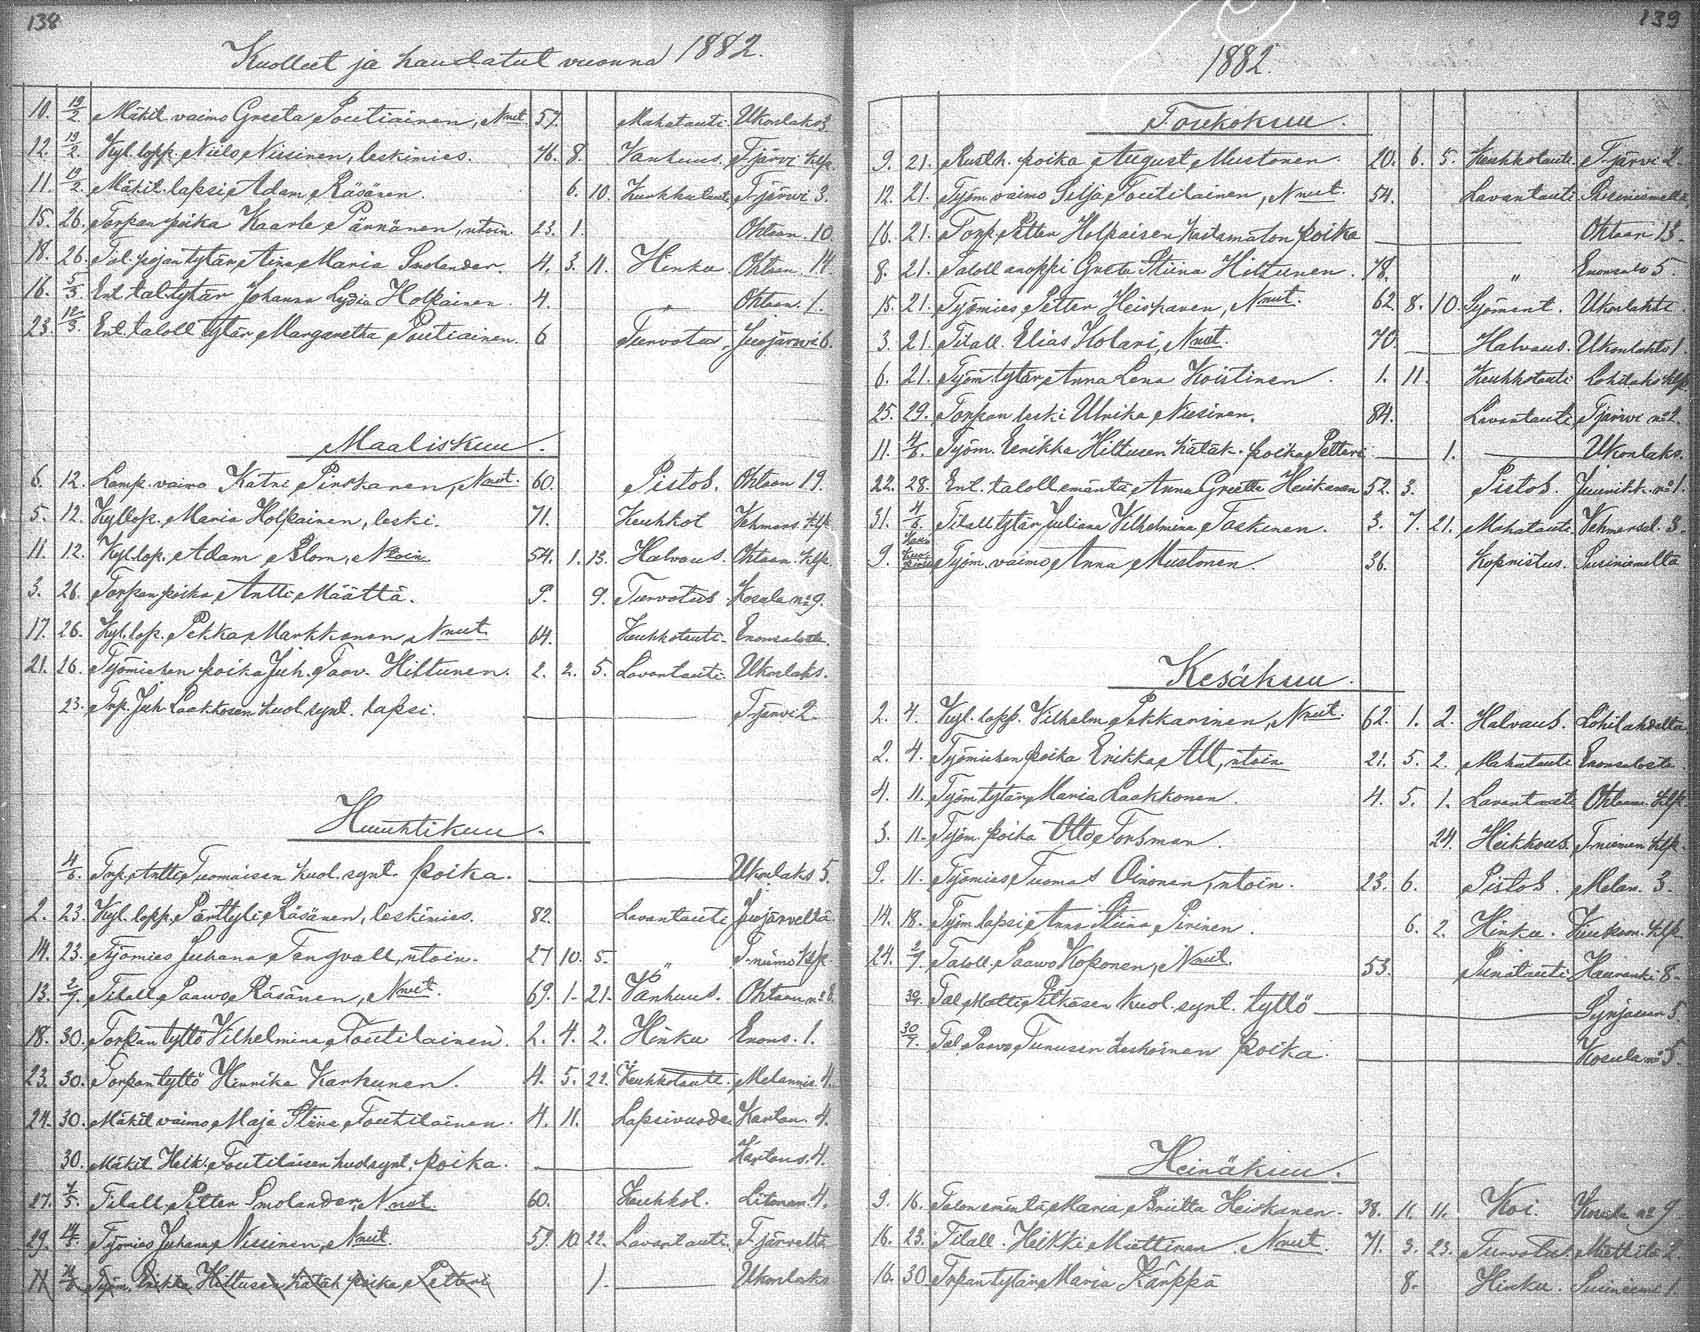 138
Kuolleet ja haudatut vuonna 1882.
10. 19/2. Mäkit. vaimo Greeta Poutiainen, Nnut. 57. Mahatauti Ukonlaks 3.
12. 19/2. Kyl. lopp. Niilo Nissinen, leskimies. 76. 8. Vanhuus. Tjärvi klp.
11. 19/2. Mäkit. lapsi Adam Räsänen. 6. 10. Keuhkotauti Tjärvi 3.
15. 26. Torpan poika Kaarle Pännänen, ntoin. 23. 1. Ohtaan. 10.
18. 26. Tal. pojan tytär Aina Maria Smolander. 4. 3. 11. Hinku Ohtaan. 14.
16. 5/3. Ent. tal. tytär Johanna Lydia Holpainen. 4. " Ohtaan. 1.
23. 12/3. Ent. taloll tytär Margaretha Poutiainen. 6 Turvotus Juojärvi 6.
Maaliskuu.
6. 12. Lamp. vaimo Katri Pirskanen, Nnut. 60. Pistos. Ohtaan 19.
5. 12. Kyl lop. Maria Holpainen, leski. 71. Keuhkot Vehmars. klp.
11. 12. Kyl. lop. Adam Blom, Ntoin 54. 1. 13. Halvaus. Ohtaan. klp.
3. 26. Torpan poika Antti Määttä. 9. 9. Turvotus Kosula no 9.
17. 26. Kyl. lop. Pekka Markkanen Nnut. 64. Keuhkotauti Enonsalosta.
21. 26. Työmiehen poika Juh. Taav. Hiltunen. 2. 2. 5. Lavantauti. Ukonlaks.
23. Trp. Juh Laakkosen kuol. synt. lapsi. Tjärvi 2.
Huuhtikuu.
4/6. Trp. Antti Tuomaisen kuol. synt. poika. Ukonlaks 5.
2. 23. Kyl. lopp. Pärttyli Räsänen, leskimies. 82. Lavantauti Juojärveltä
14. 23. Työmies Juhana Tengvall, ntoin. 27 10. 5. " T-niimo klp.
13. 2/7. Tilall. Paavo Räsänen, Nnut. 69. 1. 21. Vanhuus. Ohtaan no 8.
18. 30. Torpan tyttö Vilhelmina Toutilainen. 2. 4. 2. Hinku Enons. 1.
23. 30. Torpan tyttö Hinrika Karhunen. 4. 5. 22. Keuhkotauti. Melannie. 4.
24. 30. Mäkit vaimo Maja Stiina Toutilainen. 4. 11. Lapsivuode Kartan. 4.
30. Mäkit Heik. Toutilaisen kuol synt. poika. Kartans. 4.
27. 7/5. Tilall. Petter Smolander, Nnut. 60. Keuhkot. Litman. 4.
29. 14/5. Työmies Juhana Nissinen, Nnut. 59. 10. 22. Lavantauti. Tjärveltä
11 4/6 Työm. Erikka Hiltusen kätäk poika Petteri 1. Ukonlaks
139
1882.
Toukokuu.
9. 21. Rusth. poika August Mustonen. 20. 6. 5. Keuhkotauti. Tjärvi 2.
12. 21. Työm vaimo Silja Toutilainen, Nnut. 54. Lavantauti
16. 21. Torp. Petter Holpaisen kastamaton poika Ohtaan 13.
8. 21. Taloll anoppi Greta Stiina Hiltunen. 78. " Enonsalo 5.
15. 21. Työmies Petter Heiskanen, Nnut. 62. 8. 10. Syömint. Ukonlahti.
3. 21. Tilall. Elias Holari, Nnut. 70. Halvaus. Ukonlahti 1.
6. 21. Työm tytär Anna Lena Koistinen. 1. 11. Keuhkotauti Lohilaks klp.
25. 29. Torpan leski Ulrika Nissinen. 84. Lavantauti Tjärvi no 2.
11. 4/6. Työm. Eerikka Hiltusen kätäk. poika Petteri 1. Ukonlaks.
22. 28. Ent. taloll. emäntä Anna Greetta Heiskanen 52. 3. Pistos. Juunikk. no 1.
31. 4/6. Tilall tytär Juliana Vilhelmina Taskinen. 3. 7. 21. Mahatauti Vehmersal. 3.
9. Työm. vaimo Anna Mustonen 36. Kopristus. Susiniemeltä
Kesäkuu.
2. 4. Kyl. lopp. Vilhelm Pekkarinen, Nnut. 62. 1. 2. Halvaus. Lohilahdelta
2. 4. Työmiehen poika Erikka Alt, ntoin 21. 5. 2. Mahatauti Enonsalosta.
4. 11. Työm tytär Maria Laakkonen. 4. 5. 1. Lavantauti Ohtaan. klp.
3. 11. Työm poika Otto Forsman. 24. Heikkous. T-niemen klp.
9. 11. Työmies Tuomas Oinonen, ntoin. 23. 6. Pistos. Melan. 3.
14. 18. Työm lapsi Anna Stiina Pirinen. 6. 2. Hinku. klp.
24. 2/7. Taloll. Paavo Koponen, Nnut. 53. Punatauti Hauranki 8.
Tal. Matti Pitkäsen kuol. synt. tyttö Syrjäsaari 5.
30/7. Tal. Paavo Tunusen keskoinen poika. Kosula no 5.
Heinäkuu.
9. 16. Talon emäntä Maria Briitta Heiskanen. 38. 11. 11. Koi. Kosula no 9
16. 23. Tilall. Heikki Miettinen, Nnut. 71. 3. 23. Turvotus. Miettilä 2.
16. 30. Torpan tytär Maria Kärppä 8. Hinku. Susiniemi 1.